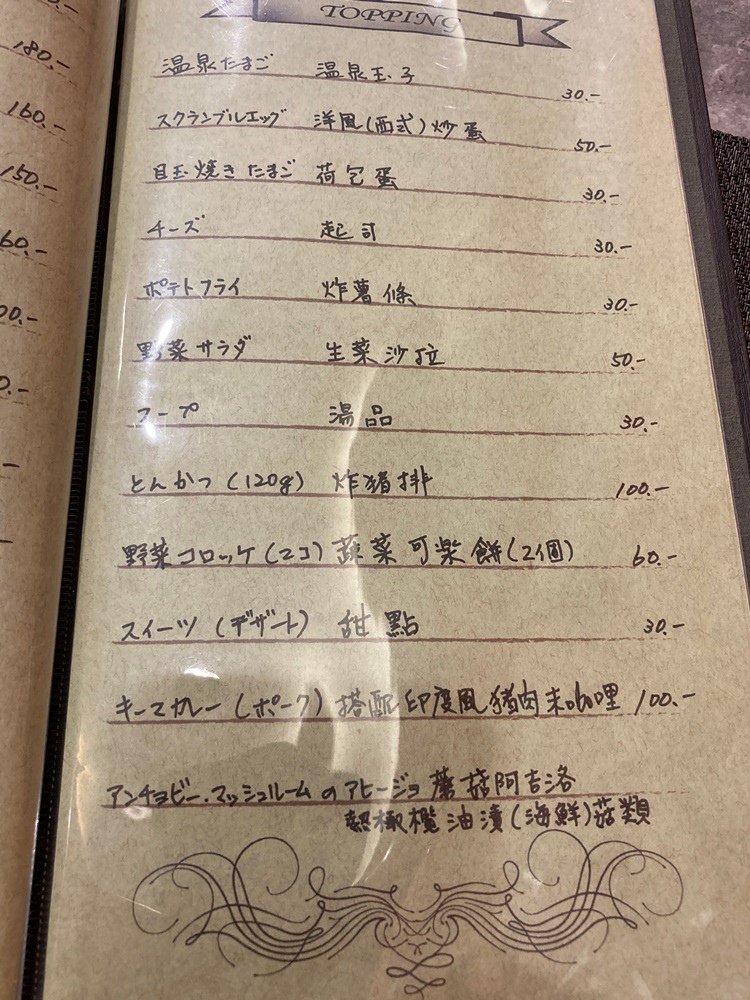 180.-
160.-
150.-
60.-
TOPPING
温泉たまご 温泉玉子 30.-
スクランブルエッグ 洋風(西式)炒蛋 50.-
目玉焼きたまご 荷包蛋 30.-
チーズ 起司 30.-
ポテトフライ 炸薯條 30.-
野菜サラダ 生菜沙拉 50.-
スープ 湯品 30.-
とんかつ(120g) 炸豬排 100.-
野菜コロッケ(2コ) 蔬菜可楽餅(2個) 60.-
スイーツ(デザート) 甜點 30.-
キーマカレー(ポーク) 搭配印度風豬肉末咖哩 100.-
アンチョビー.マッシュルームのアヒージョ 蘑菇阿吉洛
熱橄欖油漬(海鮮)菇類